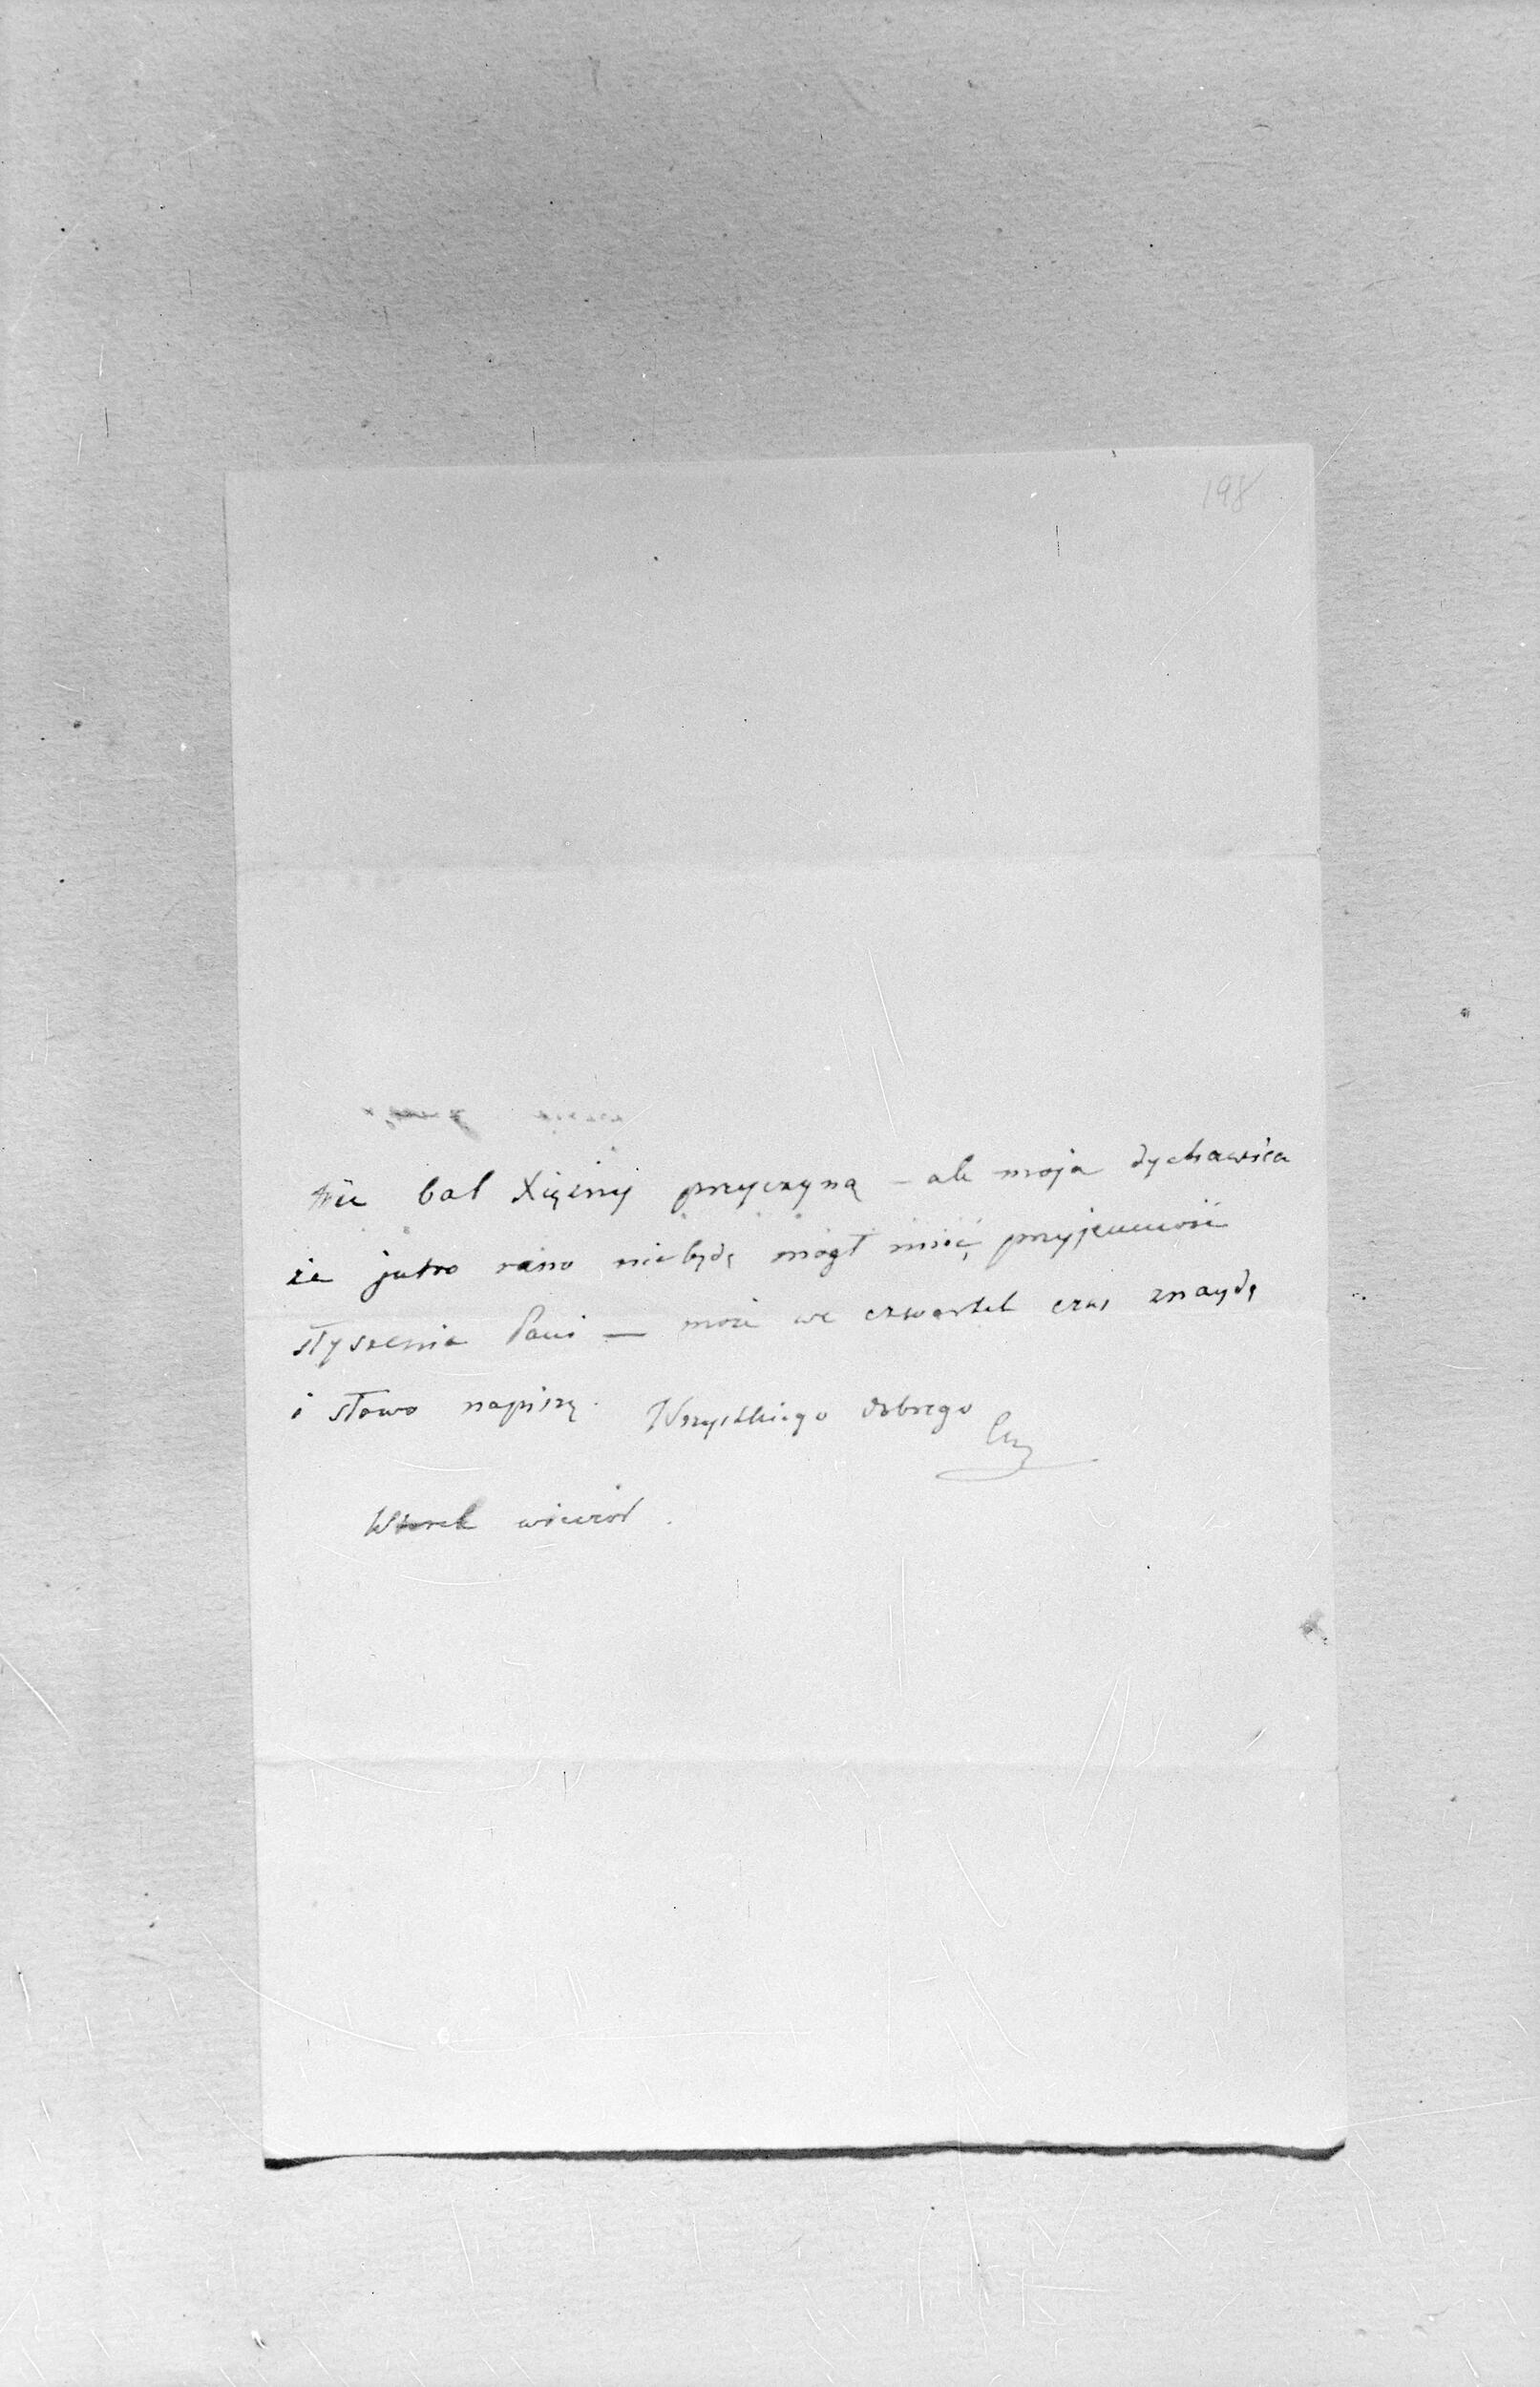 198
Nie bal Xiężnij przyczyną – ale moja dychawica
że jutro rano nie będę mógł mieć przyjemność
słyszenia Pani — może we czwartek czas znaydę
i słowo napiszę. Wszystkiego dobrego
Wtorek wieczór.